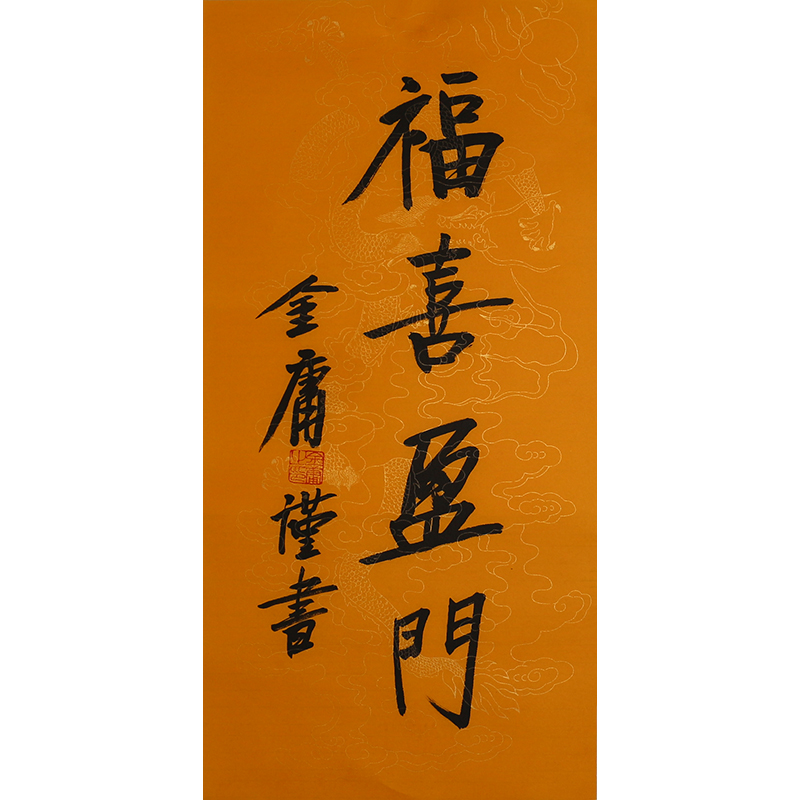 福喜盈門
金庸謹書